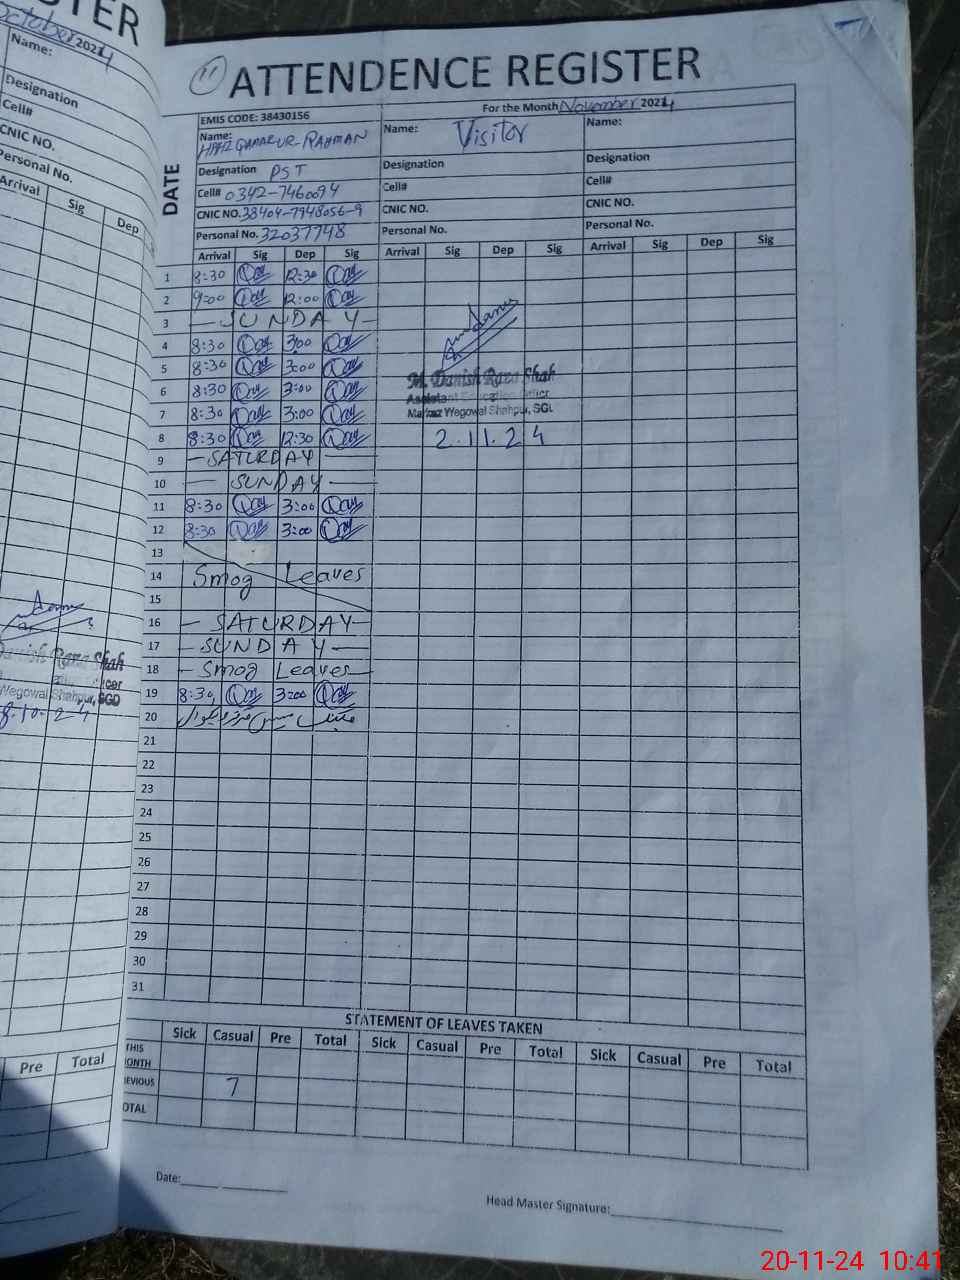 STER
October 2024
Name:
Designation
Cell#
CNIC NO.
Personal No.
Arrival Sig Dep
Danish Raza Shah
Wegowal Shahpur, SGD
8.10.24
Pre Total
11 ATTENDENCE REGISTER
EMIS CODE: 38430156 For the Month November 2024
DATE
Name: HAFIZ QAMAR-UR-RAHMAN Name: Visitor Name:
Designation PST Designation Designation
Cell# 0342-7460094 Cell# Cell#
CNIC NO. 38404-7948056-9 CNIC NO. CNIC NO.
Personal No. 32037748 Personal No. Personal No.
Arrival Sig Dep Sig Arrival Sig Dep Sig Arrival Sig Dep Sig
1 8:30 Qay 12:30 Qay
2 9:00 Qay 12:00 Qay
3 — SUNDAY —
4 8:30 Qay 3:00 Qay
5 8:30 Qay 3:00 Qay
6 8:30 Qay 3:00 Qay
7 8:30 Qay 3:00 Qay
8 8:30 Qay 12:30 Qay
M. Danish Raza Shah
Assistant Education Officer
Markaz Wegowal Shahpur, SGD
2.11.24
9 — SATURDAY —
10 — SUNDAY —
11 8:30 Qay 3:00 Qay
12 8:30 Qay 3:00 Qay
13
14 Smog Leaves
15
16 — SATURDAY —
17 — SUNDAY —
18 — Smog Leaves —
19 8:30 Qay 3:00 Qay
20
21
22
23
24
25
26
27
28
29
30
31
STATEMENT OF LEAVES TAKEN
Sick Casual Pre Total Sick Casual Pre Total Sick Casual Pre Total
THIS MONTH
EVIOUS 7
OTAL
Date:
Head Master Signature:
20-11-24 10:41